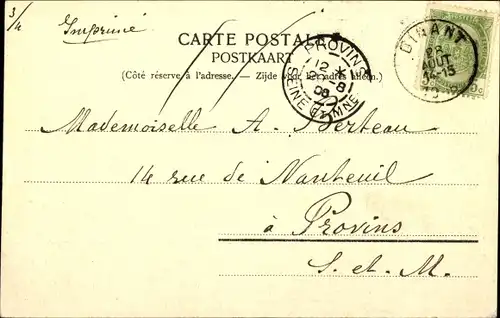 3/4
Imprimé
CARTE POSTALE
POSTKAART
(Côté réservé à l'adresse. — Zijde voor het adres alleen.)
PROVINS
12
SEINE ET MARNE
DINANT
AOUT
14-15
Mademoiselle A. Berteau
14 rue de Nanteuil
à Provins
S. et. M.